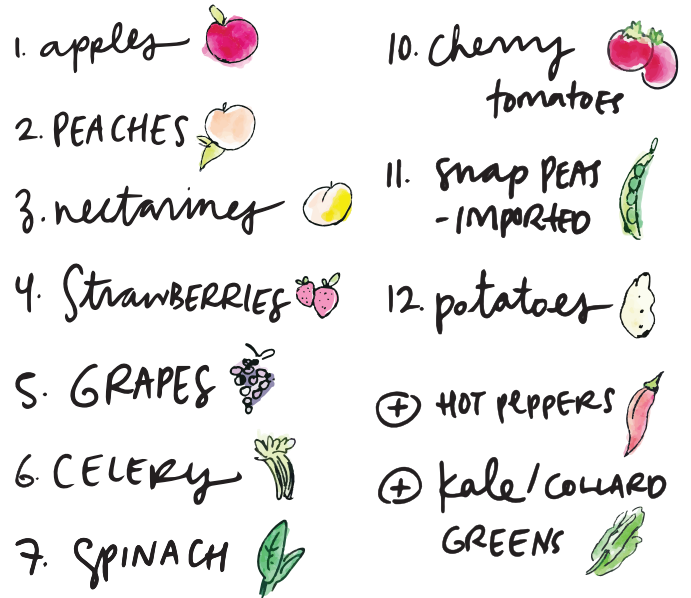 1. apples
2. PEACHES
3. nectarines
4. StrawBERRIES
5. GRAPES
6. CELERY
7. SPINACH
10. cherry
tomatoes
11. snap PEAS
-IMPORTED
12. potatoes
+ HOT PEPPERS
+ kale/COLLARD
GREENS